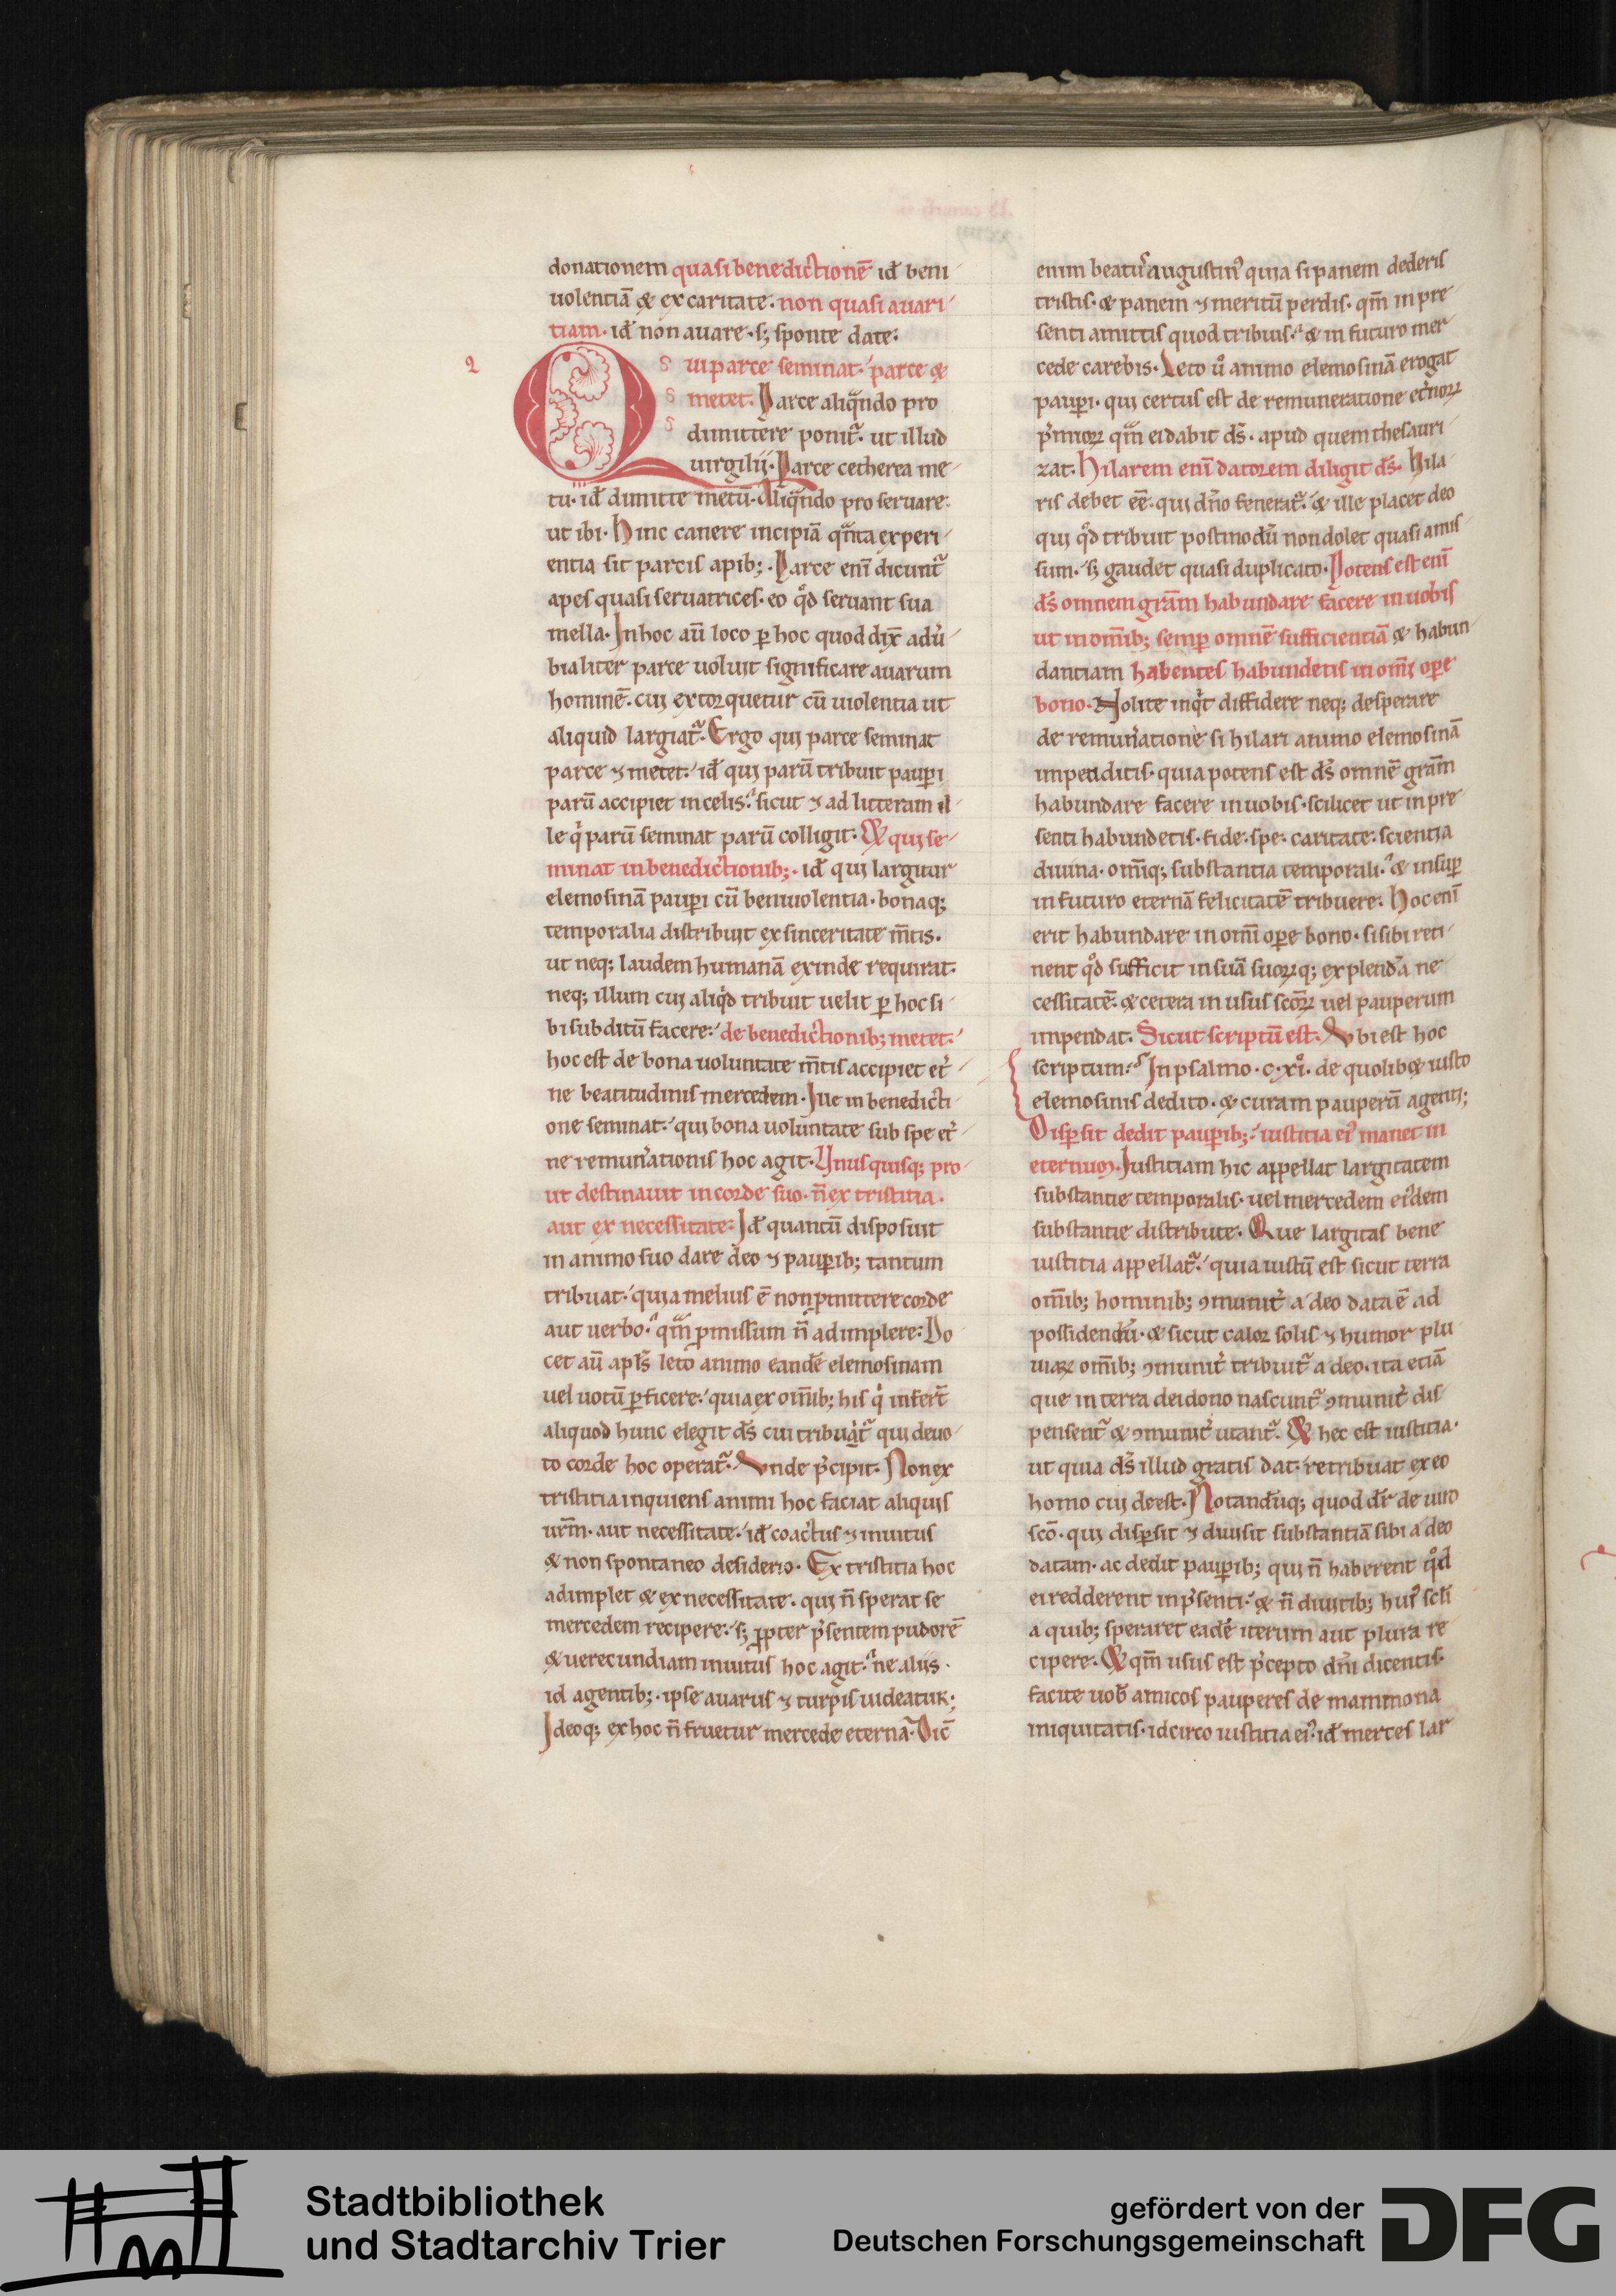 donationem quasi benedictionē id ÷ beni
uolentiā & ex caritate. non quasi auari
tiam. id ÷ non auare. sꝫ sponte date.
Qui parce seminat. parce &
metet. Parce aliqͣndo pro
dimittere ponitᷣ. ut illud
uirgilij. Parce cetherea me
tu. id ÷ dimitte metū. Aliqͣndo pro seruare.
ut ibi. Hinc canere incipiā qͣnta experi
entia sit parcis apibꝫ. Parce enī dicuntᷣ
apes quasi seruatrices. eo qͦd seruant sua
mella. In hoc aū loco ꝑ hoc quod dix̄ aduͥ
bialiter parce uoluit significare auarum
hominē. cui extorquetur cū uiolentia ut
aliquid largiatᷣ. Ergo qui parce seminat
parce ⁊ metet. id ÷ qui parū tribuit pauꝑi
parū accipiet in celis. sicut ⁊ ad litteram il
le qͥ parū seminat parū colligit. Et qui se
minat in benedictionibꝫ. id ÷ qui largitur
elemosinā pauꝑi cū beniuolentia. bonaqꝫ
temporalia distribuit ex sinceritate m̄tis.
ut neqꝫ laudem humanā exinde requirat.
neqꝫ illum cui aliqͥd tribuit uelit ꝑ hoc si
bi subditū facere. de benedictionibꝫ metet.
hoc est de bona uoluntate m̄tis accipiet et̾
ne beatitudinis mercedem. Ille in benedicti
one seminat. qui bona uoluntate sub spe et̾
ne remun̾ationis hoc agit. Unusquisqꝫ pro
ut destinauit in corde suo. n̄ ex tristitia.
aut ex necessitate. Id ÷ quantū disposuit
in animo suo dare deo ⁊ pauꝑibꝫ tantum
tribuat. quia melius ē non ꝓmittere corde
aut uerbo. qm̄ ꝓmissum n̄ adimplere. Do
cet aū apl̄s leto animo eandē elemosinam
uel uotū ꝑficere. quia ex om̄ibꝫ his qͥ infert̄
aliquod hunc elegit ds̄ cui tribuatᷣ qui deuo
to corde hoc operatᷣ. Unde p̾cipit. Non ex
tristitia inquiens animi hoc faciat aliquis
urm̄. aut necessitate. id ÷ coactus ⁊ inuitus
& non spontaneo desiderio. Ex tristitia hoc
adimplet & ex necessitate. qui n̄ sperat se
mercedem recipere. sꝫ ꝓpter p̾sentem pudorē
& uerecundiam inuitus hoc agit. ne aliis
id agentibꝫ. ipse auarus ⁊ turpis uideatur.
Ideoqꝫ ex hoc n̄ fruetur mercede eterna. Dic̄
enim beatus augustinꝰ quia si panem dederis
tristis. & panem ⁊ meritū perdis. qm̄ in pre
senti amittis quod tribuis. & in futuro mer
cede carebis. Leto uͦ animo elemosinā erogat
pauꝑi. qui certus est de remuneratione et̾noꝝ
p̾mioꝝ qm̄ ei dabit ds̄. apud quem thesauri
zat. Hilarem enī datorem diligit ds̄. Hila
ris debet eē. qui dn̄o feneratᷣ. & ille placet deo
qui qͦd tribuit postmodū non dolet quasi amis
sum. sꝫ gaudet quasi duplicato. Potens est enī
ds̄ omnem grām habundare facere in uobis
ut in om̄ibꝫ semꝑ omnē sufficientiā & habun
dantiam habentes habundetis in om̄i oꝑe
bono. Nolite inqͥt diffidere neqꝫ desperare
de remun̾atione si hilari animo elemosinā
impenditis. quia potens est ds̄ omnē grām
habundare facere in uobis. scilicet ut in pre
senti habundetis. fide. spe. caritate. scientia
diuina. om̄iqꝫ substantia temporali. & insuꝑ
in futuro eternā felicitatē tribuere. Hoc enī
erit habundare in om̄i oꝑe bono. si sibi reti
nent qͦd sufficit in suā suorꝝqꝫ explendā ne
cessitatē. & cetera in usus scōꝝ uel pauperum
impendat. Sicut scriptū est. Ubi est hoc
scriptum. In psalmo. c.xi. de quolib& iusto
elemosinis dedito. & curam pauperū agenti;
Disꝑsit dedit pauꝑibꝫ. iustitia eiꝰ manet in
eternum. Iustitiam hic appellat largitatem
substantie temporalis. uel mercedem eiꝰdem
substantie distribute. Que largitas bene
iustitia appellatᷣ. quia iustū est sicut terra
om̄ibꝫ hominibꝫ ꝯmunit̾ a deo data ē ad
possidendū. & sicut calor solis ⁊ humor plu
uiaꝝ om̄ibꝫ ꝯmunit̾ tribuitᷣ a deo. ita etiā
que in terra dei dono nascuntᷣ ꝯmunit̾ dis
pensentᷣ & ꝯmunit̾ utantᷣ. Et hec est iustitia.
ut quia ds̄ illud gratis dat. retribuat ex eo
homo cui deest. Notandūqꝫ quod dr̄ de uiro
scō. qui disꝑsit ⁊ diuisit substantiā sibi a deo
datam. ac dedit pauꝑibꝫ qui n̄ haberent qͦd
ei redderent in p̾senti. & n̄ diuitibꝫ huiꝰ sc̄li
a quibꝫ speraret eadē iterum aut plura re
cipere. Et qm̄ usus est p̾cepto dn̄i dicentis.
facite uob̄ amicos pauperes de mammona
iniquitatis. idcirco iustitia eiꝰ. id ÷ merces lar
Stadtbibliothek
und Stadtarchiv Trier
gefördert von der
Deutschen Forschungsgemeinschaft
DFG